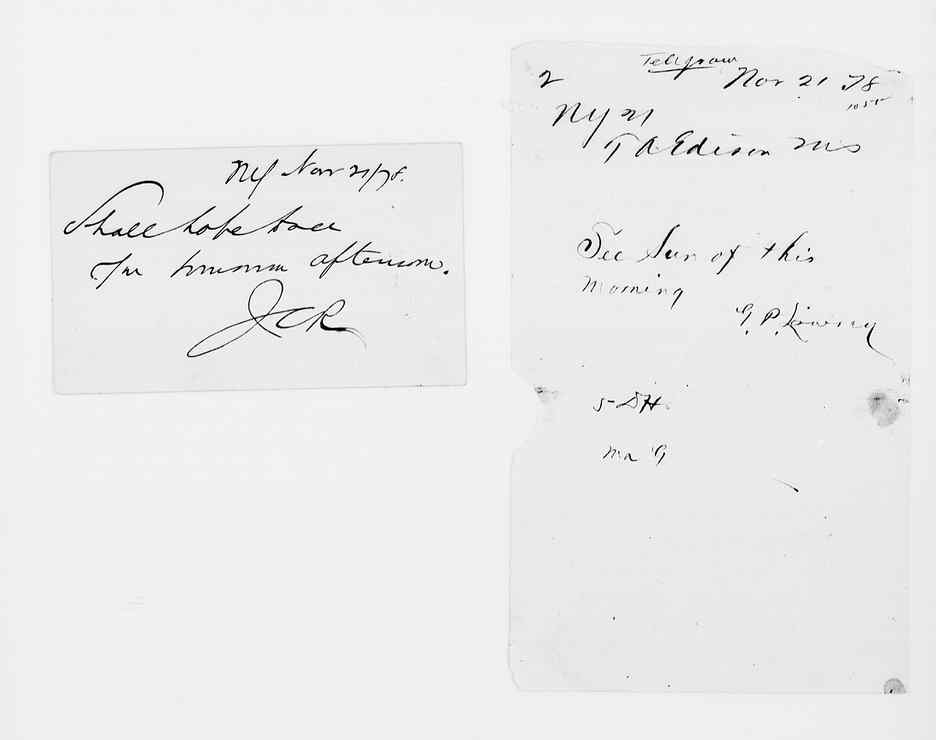 NY Nov 21/78.
Shall hope to see
you tomorrow afternoon.
JCR
Telegram
2 Nov 21 78
1055
NY 21
T A Edison
See Sun of this
morning
G. P. Lowrey
5 DH
Ma G